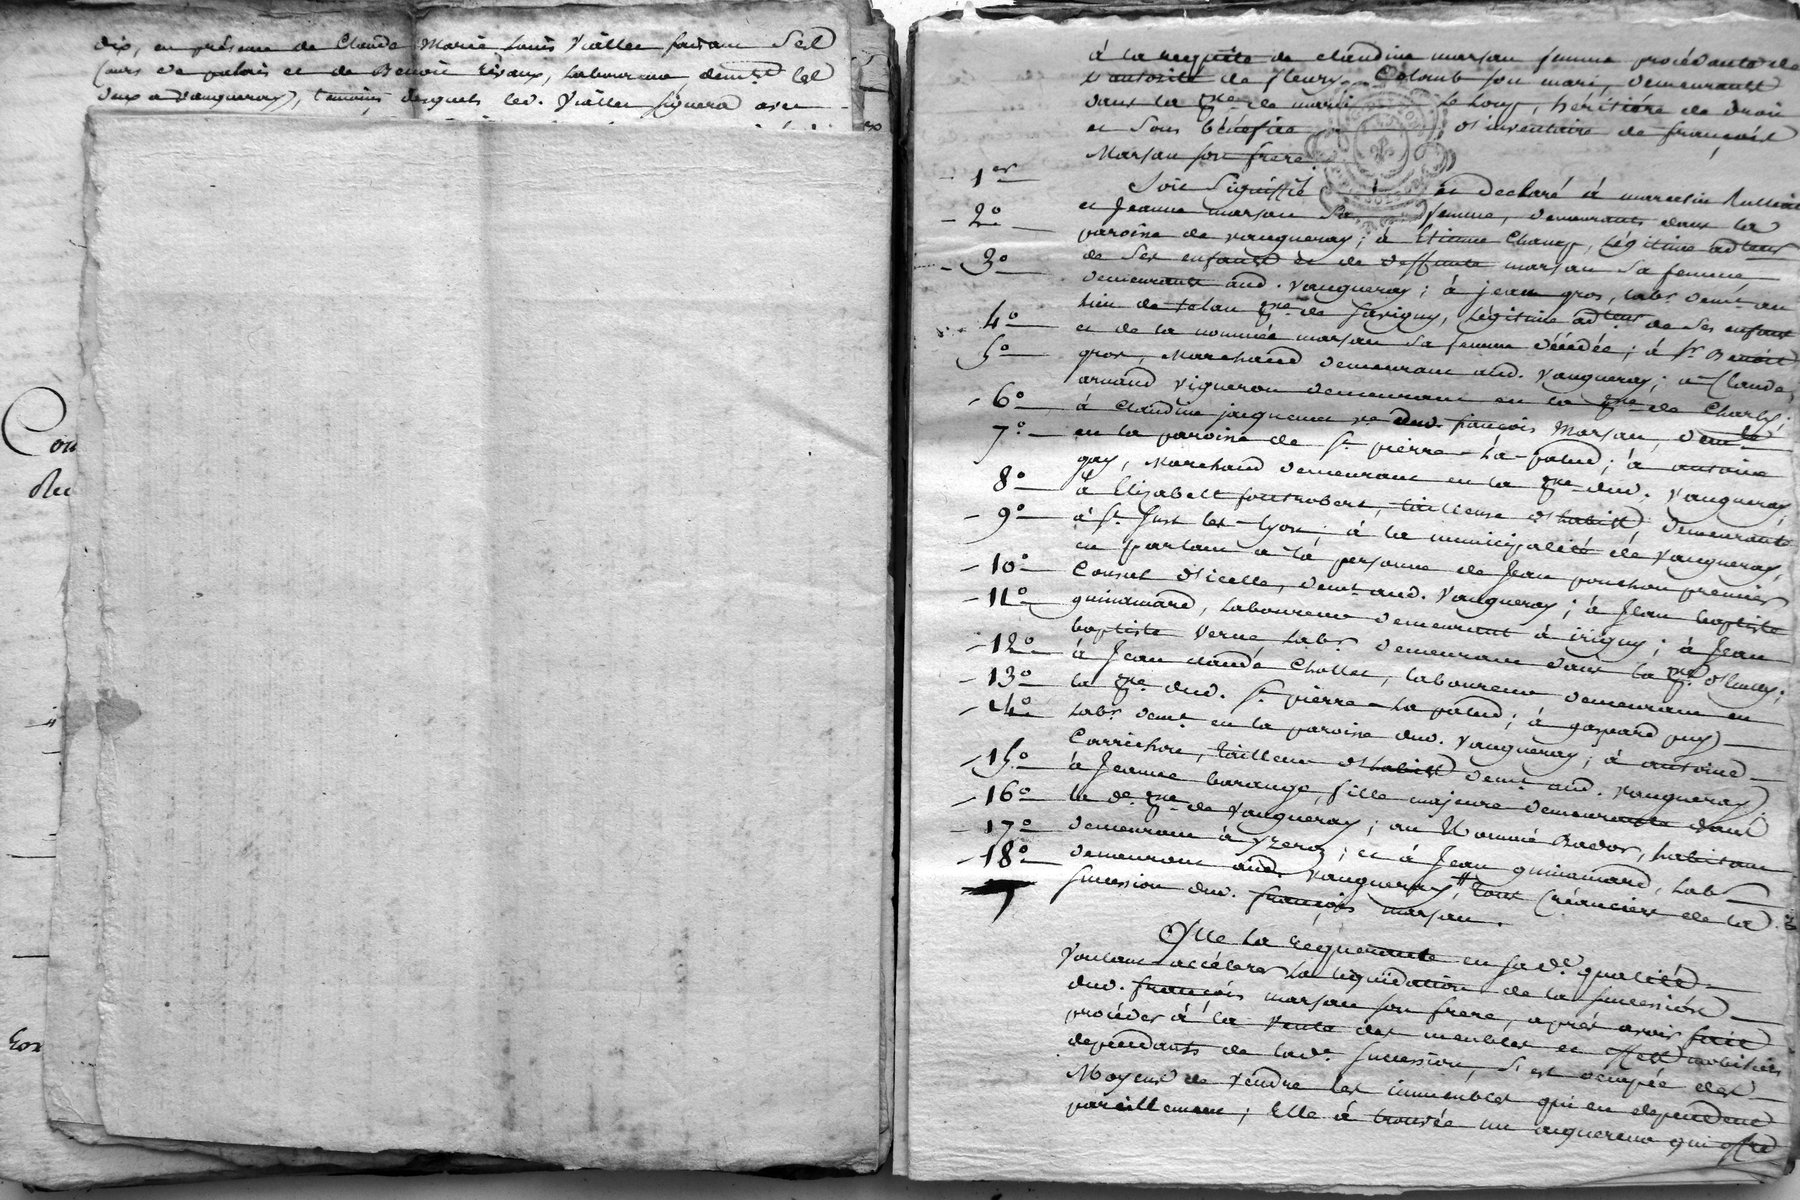 dix, en présence de Claude Marie Louis Viallet faisant ses
cours de palais et de Benoit Rivaux, laboureur demt. les
deux a Vaugneray, temoins desquels led. Viallet signera avec
Con
Rec
à la requête de claudine marsan femme procédante de
l'autorité de fleury Colomb son mari, demeurants
dans la psse. de marci Le Loup, héritière de droit
et sous bénéfice d'inventaire de françois
Marsan son frere.
1er Soit Signiffié et declaré à marcelin
2° et Jeanne marsan sa femme, demeurants dans la
paroisse de vaugneray; à Etienne Chanex, légitime adteur
3° de ses enfants et de deffunte marsan sa femme
demeurants aud. vaugneray; à jean gros, labr. demt. au
lieu de psse. de Savigny, légitime adteur de ses enfans
4° et de la nommée marsan sa femme décédée; à Sr. Benoit
5° gros, Marchand demeurant aud. Vaugneray; a Claude
arnaud vigneron demeurant en la psse. de Charly;
6° à claudine jacquemet ve. dud. françois Marsan, demte.
7° en la paroisse de St. pierre-la-palud; à antoine
gay, Marchand demeurant en la psse. dud. Vaugneray,
8° à Elizabeth fontrobert, tailleuse d'habits, demeurante
9° à St. Just les-Lyon; à la municipalité de vaugneray,
en parlant à la personne de Jean ponchon premier
10° Consul d'icelle, demt. aud. Vaugneray; à Jean baptiste
11° guinamard, laboureur demeurant à irigny; à Jean
baptiste Verne, Labr. demeurant dans la psse.
12° à Jean claude Chollet, laboureur demeurant en
13° la psse. dud. St. pierre-La palud; à gaspard puy
14° Labr. demt. en la paroisse dud. vaugneray; à antoine
Corrichon, tailleur d'habits demt. aud. vaugneray,
15° à Jeanne barange, fille majeure demeurante dans
16° la de. psse. de Vaugneray; au Nommé Bador, habitant
17° demeurant à yzeron; et à Jean guinamard, Labr.
18° demeurant aud. vaugneray, tous Créanciers de la
succession dud. françois marsan.
Q'lle la requerante en sa de. qualité
voulant accélerer la liquidation de la succession
dud. françois marsan son frere, aprés avoir fait
procéder à la vente des meubles et effets mobiliers
dependants de lade. succession, s'est occupée des
Moyens de vendre les immeubles qui en dependent
pareillement; Elle à trouvée un acquereur qui offre